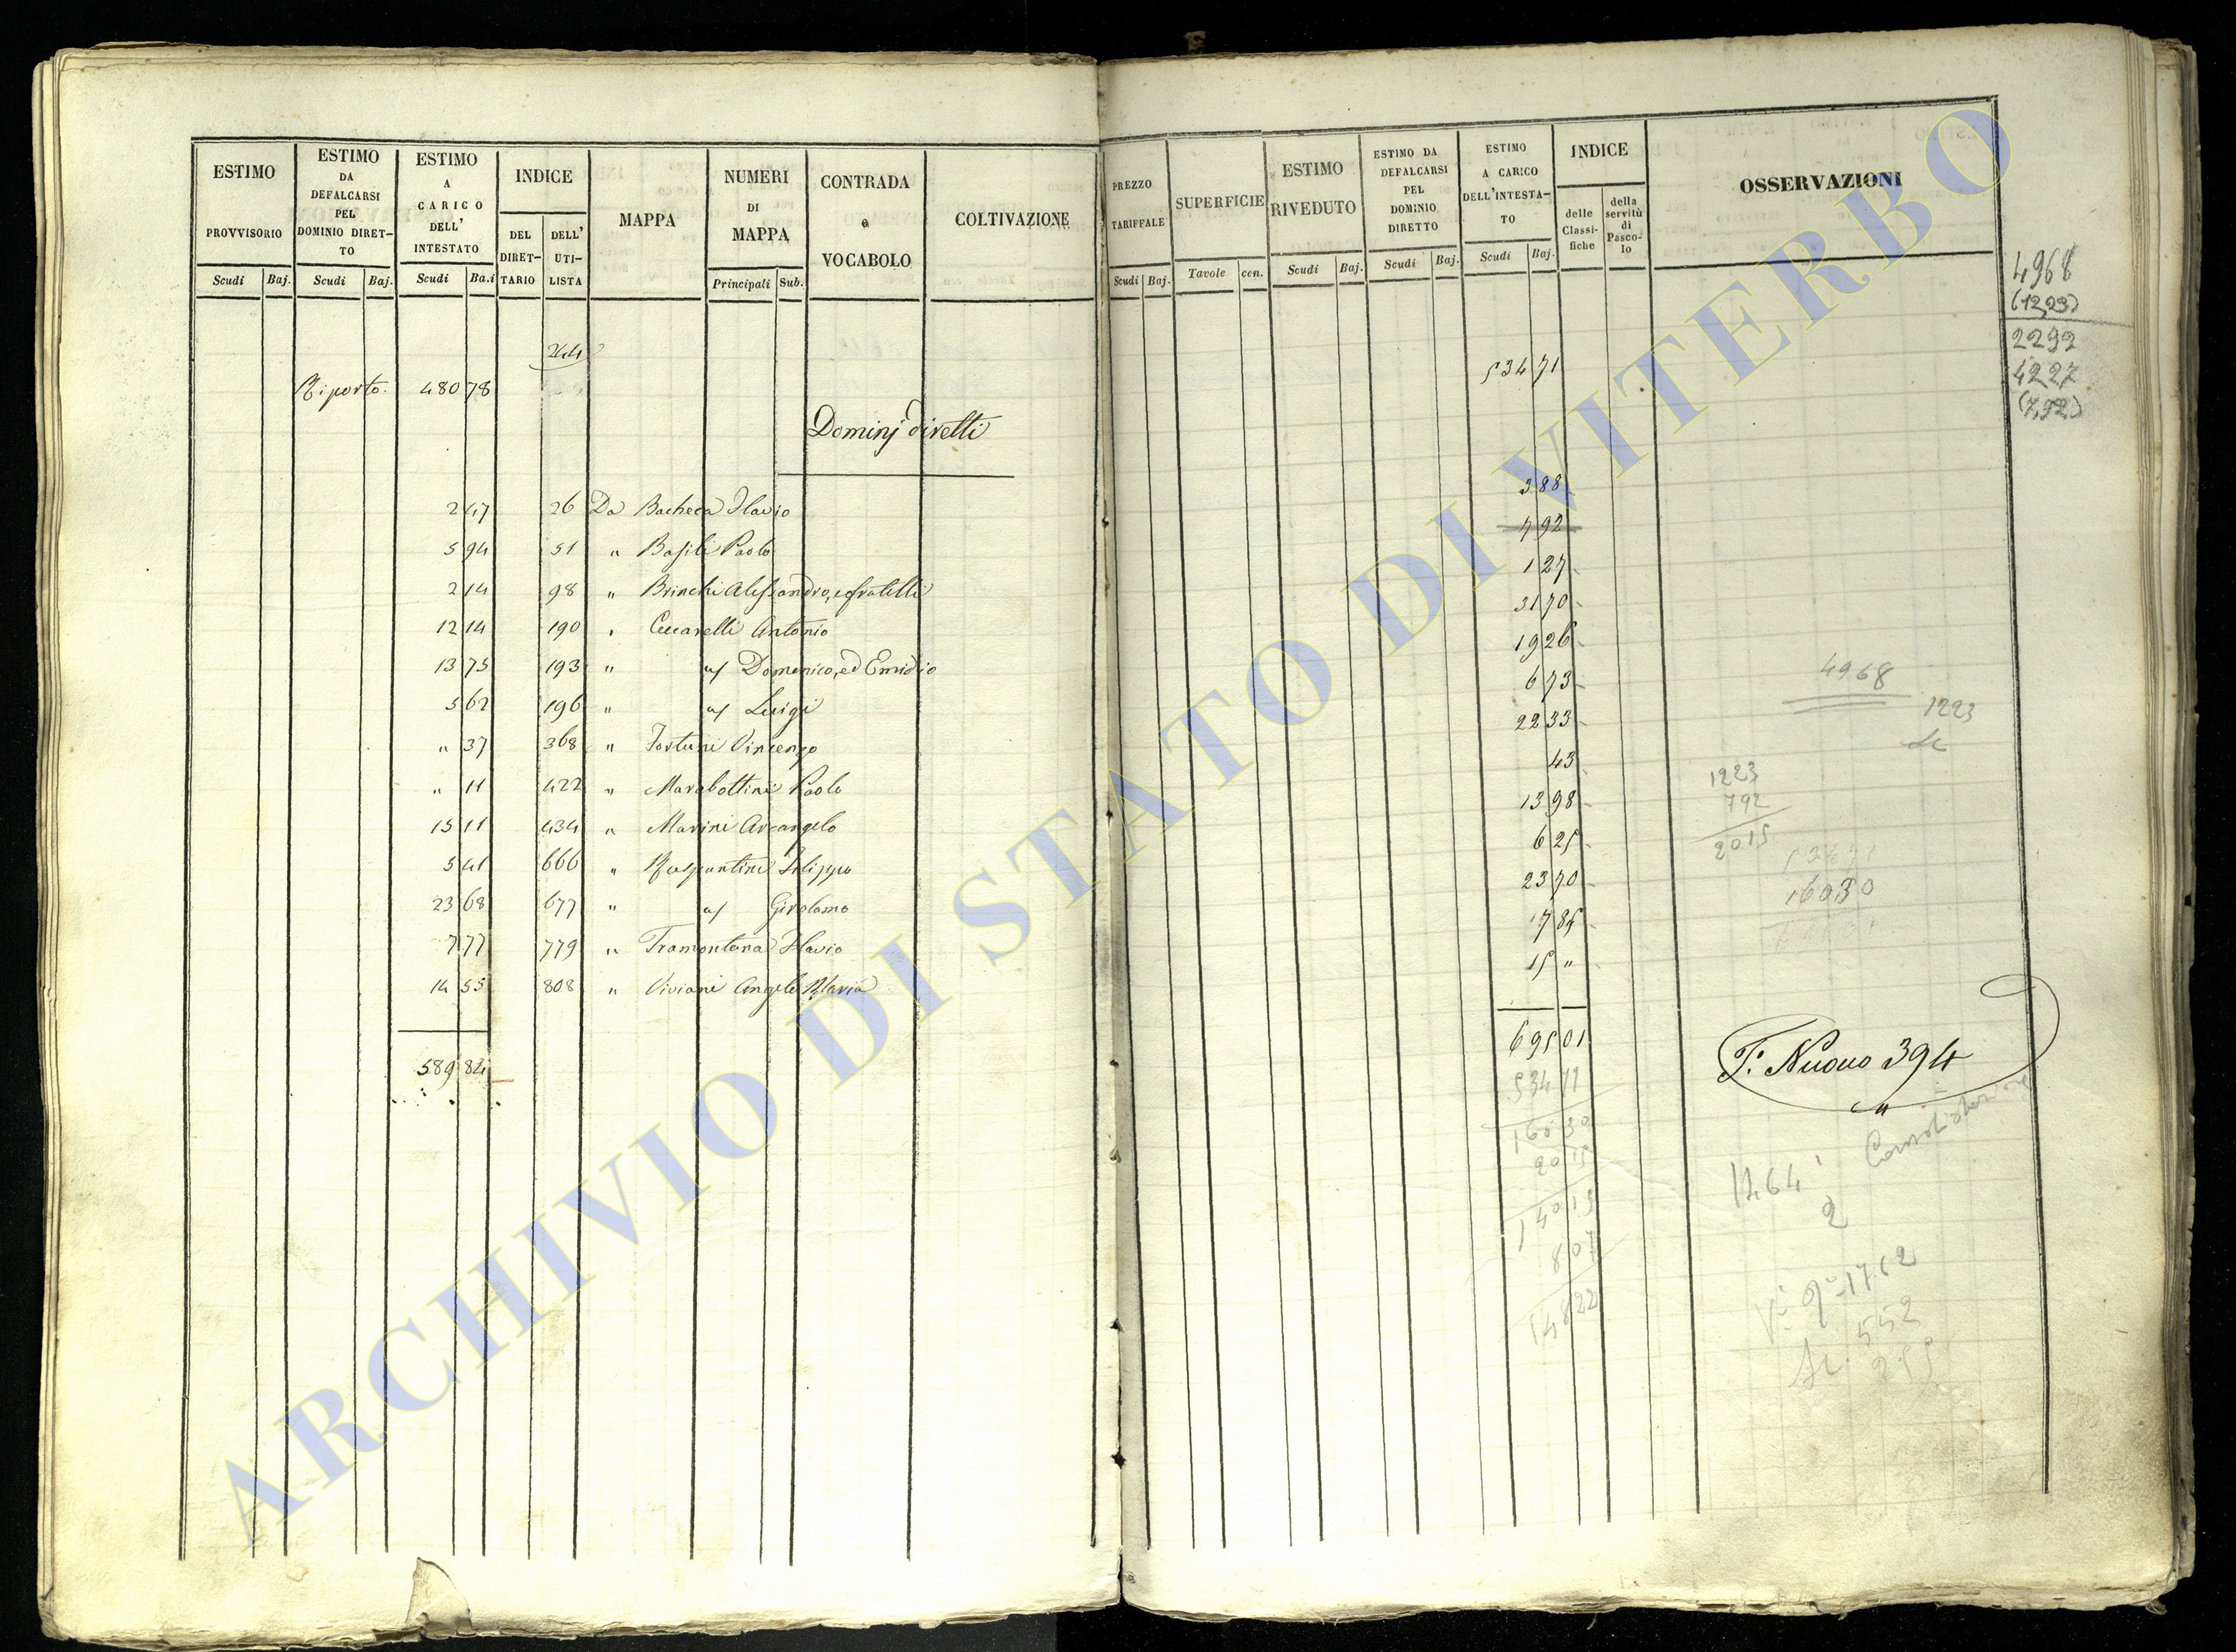 ESTIMO
PROVVISORIO
Scudi Baj.
ESTIMO
DA
DEFALCARSI
PEL
DOMINIO DIRET-
TO
Scudi Baj.
ESTIMO
A
CARICO
DELL'
INTESTATO
Scudi Ba.i
INDICE
DEL
DIRET-
TARIO
DELL'
UTI-
LISTA
MAPPA
NUMERI
DI
MAPPA
Principali Sub.
CONTRADA
o
VOCABOLO
COLTIVAZIONE
244
Riporto. 480 78
Dominj diretti
2 47 26 Da Bacheca Flavio
5 94 51 " Basili Paolo
2 14 98 " Brinchi Alessandro, e fratelli
12 14 190 " Ceccarelli Antonio
13 75 193 " a/ Domenico, ed Emidio
5 62 196 " a/ Luigi
" 37 368 " Fortuni Vincenzo
" 11 422 " Marabottini Paolo
15 11 434 " Marini Arcangelo
5 41 666 " Filippo
23 68 677 " a/ Girolamo
7 77 779 " Tramontana Flavio
14 55 808 " Viviani Angelo Maria
589 84
PREZZO
TARIFFALE
Scudi Baj.
SUPERFICIE
Tavole cen.
ESTIMO
RIVEDUTO
Scudi Baj.
ESTIMO DA
DEFALCARSI
PEL
DOMINIO
DIRETTO
Scudi Baj.
ESTIMO
A CARICO
DELL'INTESTA-
TO
Scudi Baj.
INDICE
delle
Classi-
fiche
della
servitù
di
Pasco-
lo
OSSERVAZIONI
534 71
3 88
7 92
1 27
31 70
19 26
6 73
22 33
43
13 98
6 25
23 70
17 85
15 "
695 01
534 71
160 30
20 15
140 15
8 07
148 22
4968
(12,23)
2292
4227
(7,92)
4968
1223
Sc
1223
792
2015
534 71
160 30
P. Nuovo 394
1464
2
1762
552
ARCHIVIO DI STATO DI VITERBO